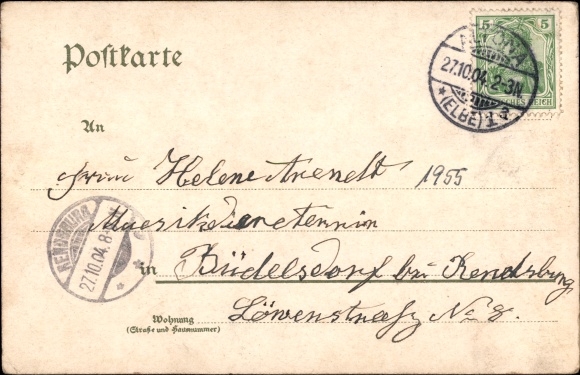 Postkarte
5 5
ALTONA
27.10.04. 2-3N.
*(ELBE)1*
DEUTSCHES REICH
An
Frau Helene Arendt 1955
Musikdirectennin
RENDSBURG
27.10.04. 8-
in Büdelsdorf bei Rendsburg
Löwenstraße No 8.
Wohnung
(Straße und Hausnummer)